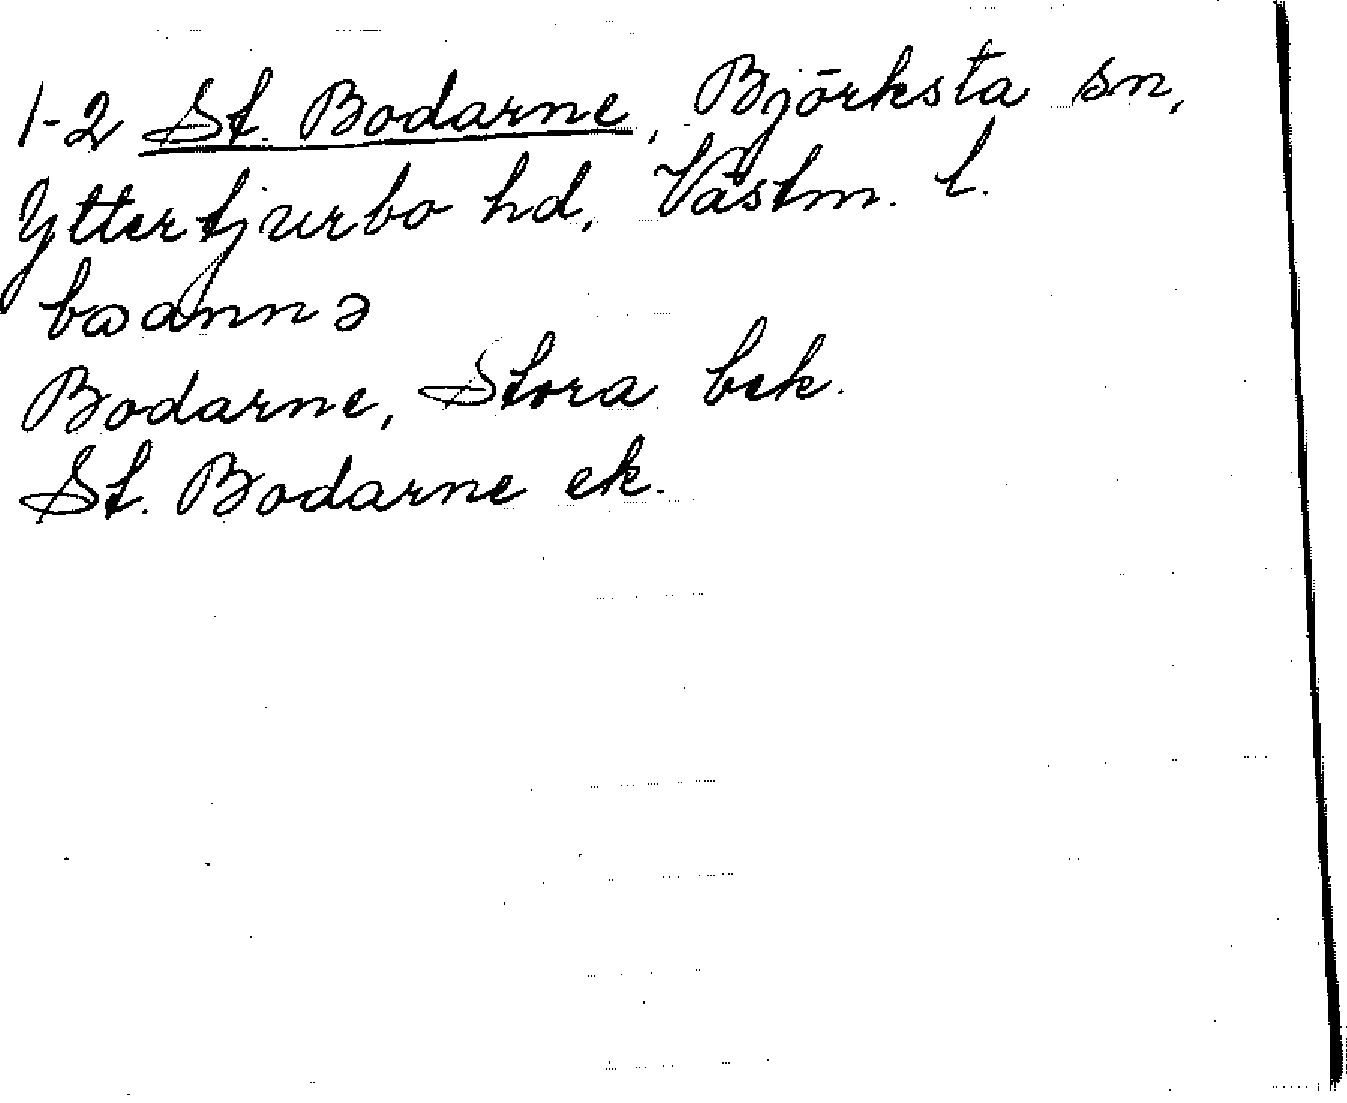 1-2 St. Bodarne, Björksta sn,
Yttertjurbo hd, Västm. l.
bωannə
Bodarne, Stora bek.
St. Bodarne ek.